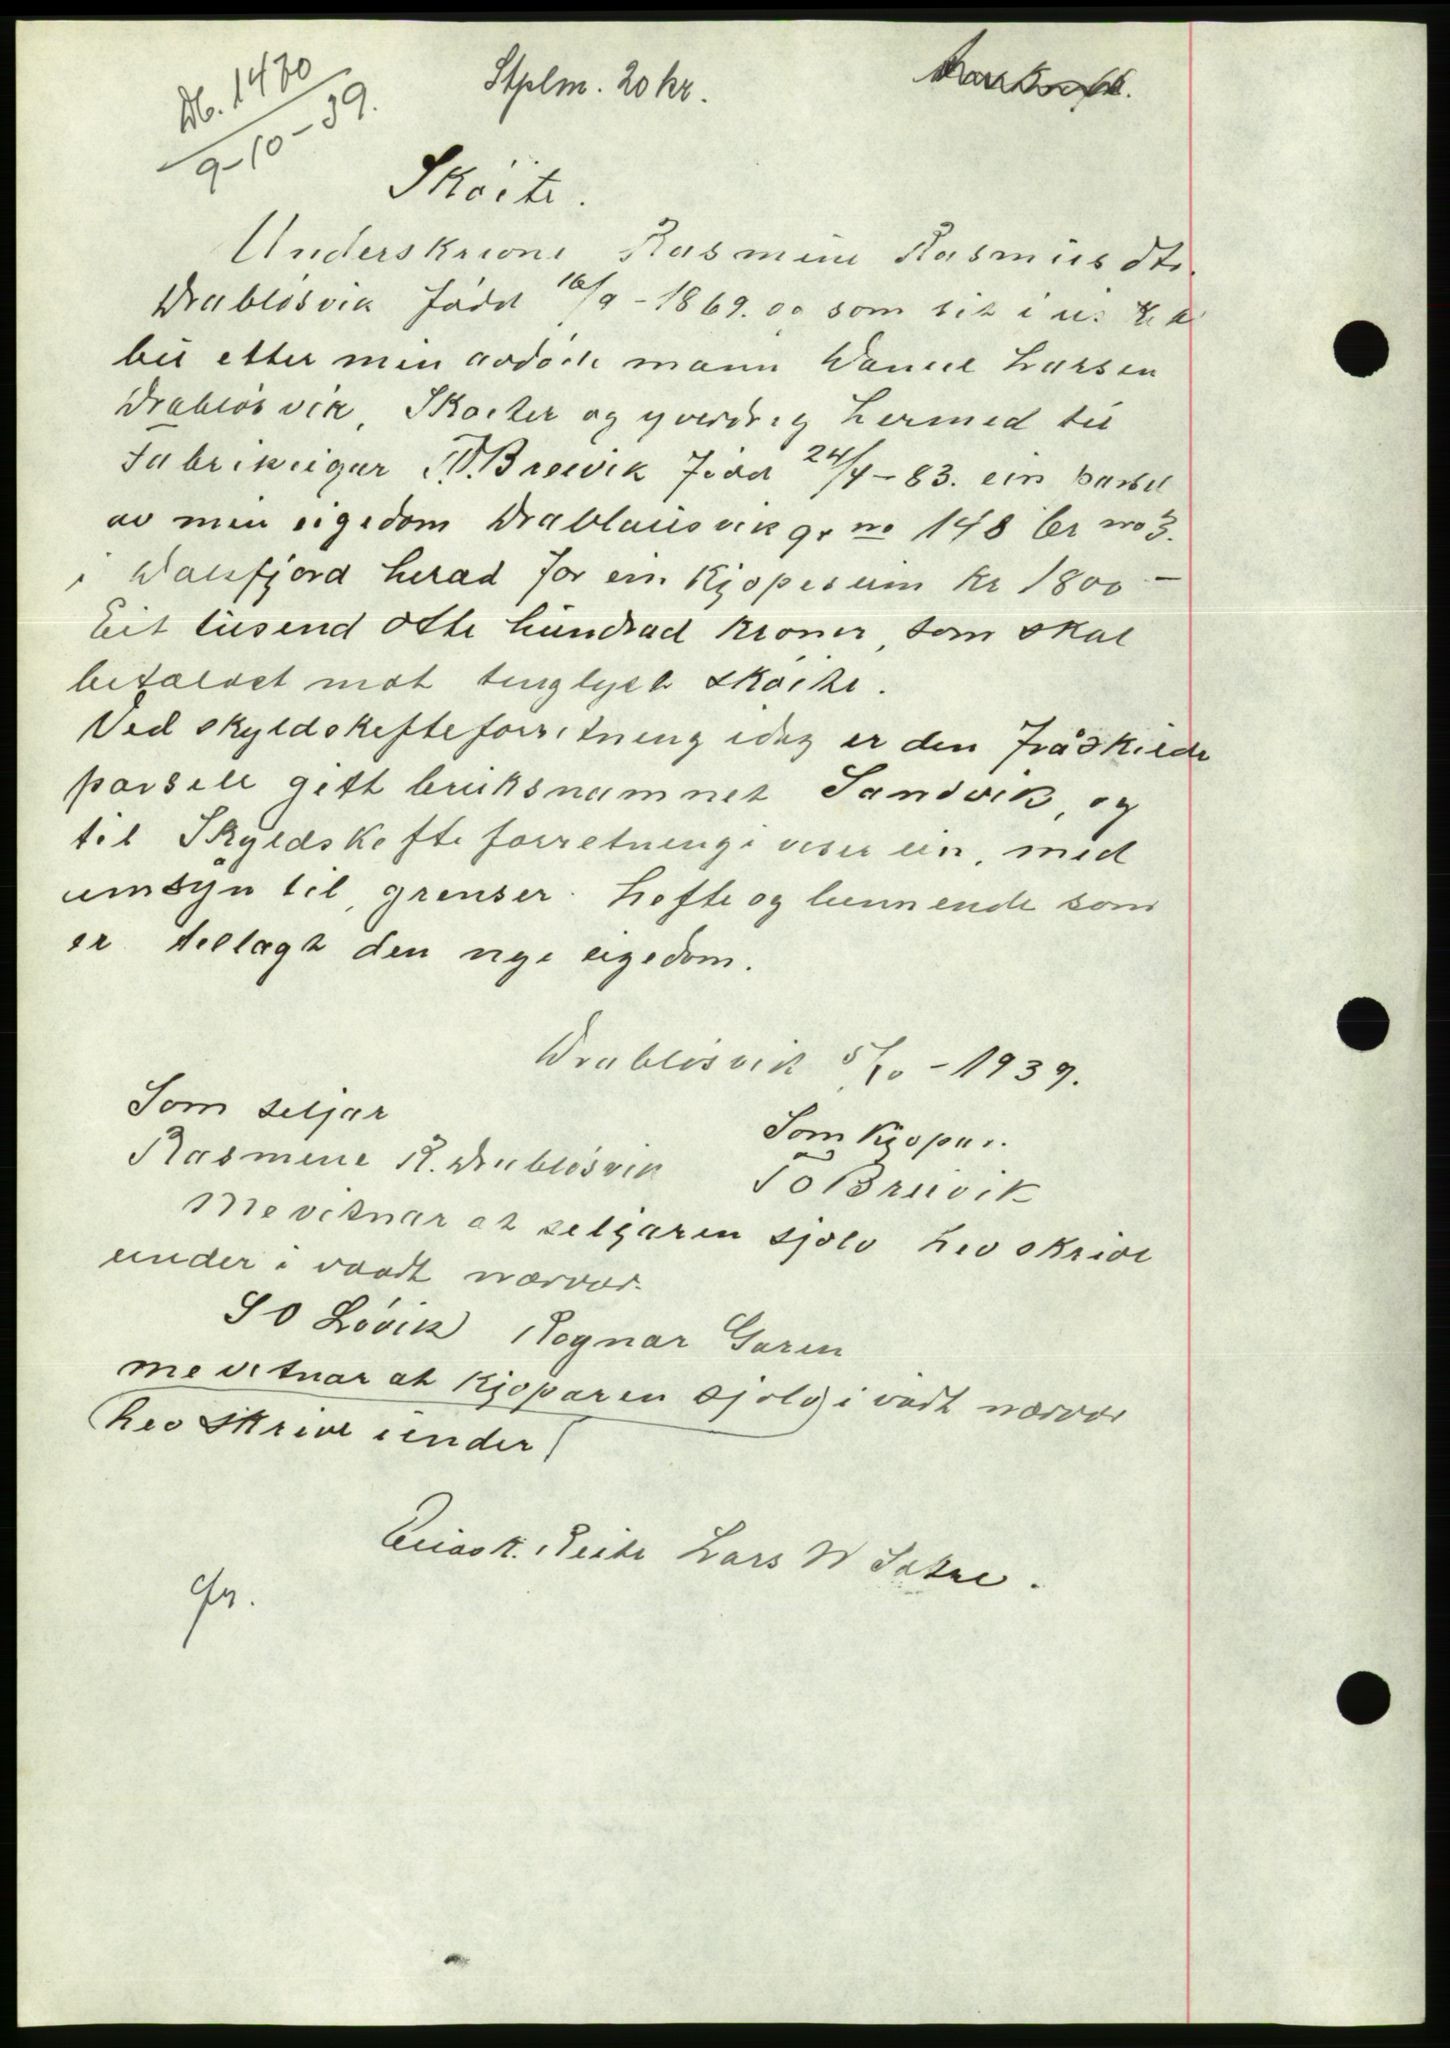 Db. 1470
9-10-39.
Stplm. 20 kr.
Skøite.
Underskrivne Rasmine Rasmusdtr.
Drabløsvik född 16/9-1869. og som sit i us
bu etter min avdøde mann Daniel Larsen
Drabløsvik, Skøiter og yverdreg hermed til
Fabrikeigar Brevik född 24/4-83. ein parsel
av min eigedom Drablausvik gr no 148 br no 3.
i Dalsfjord herad for ein Kjøpesum kr 1800 –
Eit tusend otte hundrad kroner, som skal
betalast mot tinglyst skøite.
Ved skyldskefteforretning idag er den fråskilde
parsell gitt bruksnamnet Sandvik, og
til Skyldskefteforretningi viser ein, med
umsyn til, grenser. hefte og lunnende som
er tillagt den nye eigedom.
Drabløsvik 5/10-1939.
Som seljar
Som Kjøpar.
Rasmine R. Drabløsvik
T O Brevik
Me vitnar at seljaren sjølv hev skrive
under i vaadt nærvær.
S O Løvik Ragnar Garen
me vitnar at Kjøparen sjølv i vaart nærvær
hev skrive under
Lars W Satre.